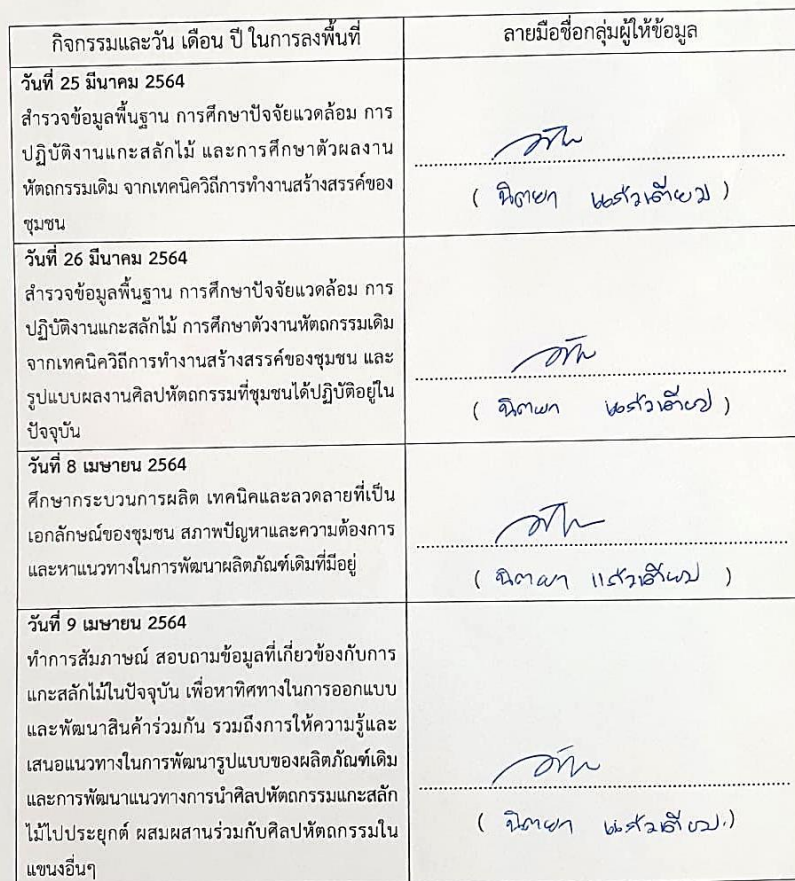 กิจกรรมและวัน เดือน ปี ในการลงพื้นที่
ลายมือชื่อกลุ่มผู้ให้ข้อมูล
วันที่ 25 มีนาคม 2564
สำรวจข้อมูลพื้นฐาน การศึกษาปัจจัยแวดล้อม การ
ปฏิบัติงานแกะสลักไม้ และการศึกษาตัวผลงาน
หัตถกรรมเดิม จากเทคนิควิถีการทำงานสร้างสรรค์ของ
ชุมชน
( นิตยา แก้วเตียม )
วันที่ 26 มีนาคม 2564
สำรวจข้อมูลพื้นฐาน การศึกษาปัจจัยแวดล้อม การ
ปฏิบัติงานแกะสลักไม้ การศึกษาตัวงานหัตถกรรมเดิม
จากเทคนิควิถีการทำงานสร้างสรรค์ของชุมชน และ
รูปแบบผลงานศิลปหัตถกรรมที่ชุมชนได้ปฏิบัติอยู่ใน
ปัจจุบัน
( นิตยา แก้วเตียม )
วันที่ 8 เมษายน 2564
ศึกษากระบวนการผลิต เทคนิคและลวดลายที่เป็น
เอกลักษณ์ของชุมชน สภาพปัญหาและความต้องการ
และหาแนวทางในการพัฒนาผลิตภัณฑ์เดิมที่มีอยู่
( นิตยา แก้วเตียม )
วันที่ 9 เมษายน 2564
ทำการสัมภาษณ์ สอบถามข้อมูลที่เกี่ยวข้องกับการ
แกะสลักไม้ในปัจจุบัน เพื่อหาทิศทางในการออกแบบ
และพัฒนาสินค้าร่วมกัน รวมถึงการให้ความรู้และ
เสนอแนวทางในการพัฒนารูปแบบของผลิตภัณฑ์เดิม
และการพัฒนาแนวทางการนำศิลปหัตถกรรมแกะสลัก
ไม้ไปประยุกต์ ผสมผสานร่วมกับศิลปหัตถกรรมใน
แขนงอื่นๆ
( นิตยา แก้วเตียม )